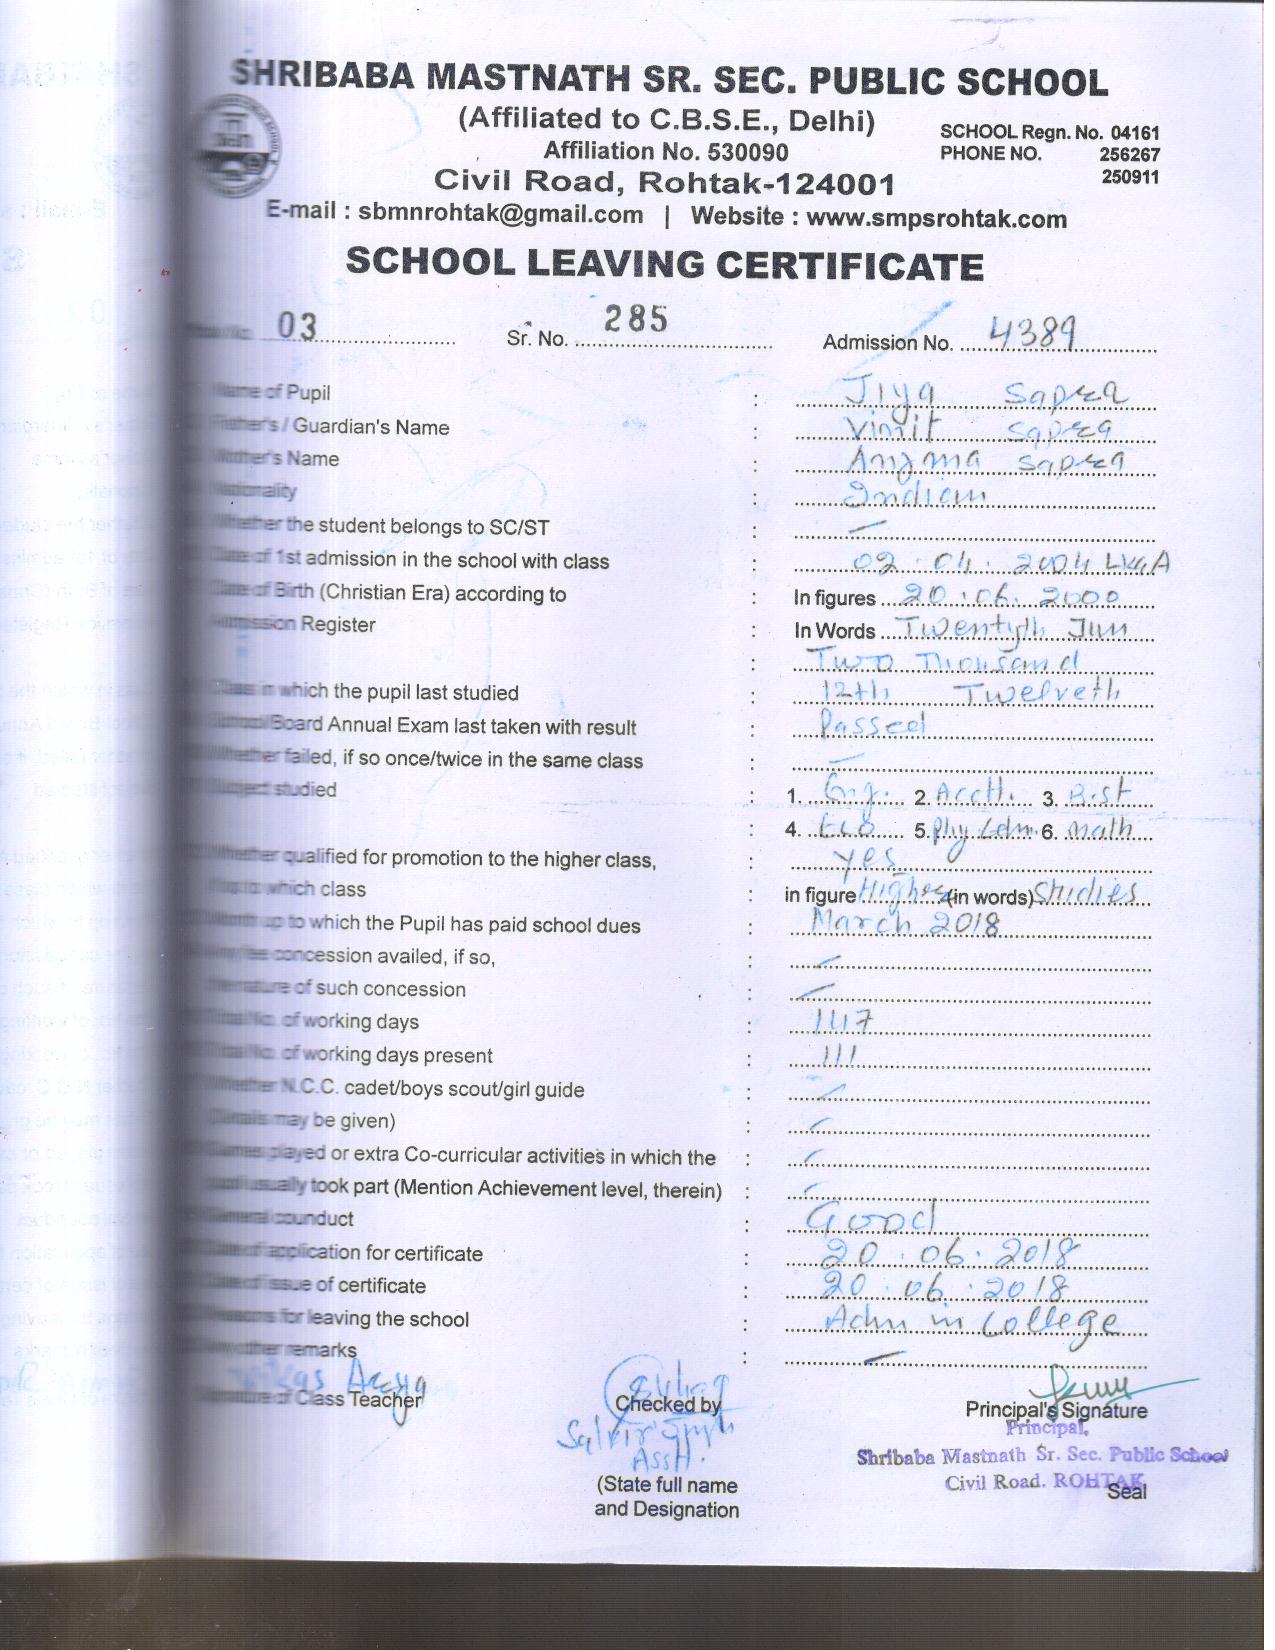 SHRIBABA MASTNATH SR. SEC. PUBLIC SCHOOL
(Affiliated to C.B.S.E., Delhi)
Affiliation No. 530090
SCHOOL Regn. No. 04161
PHONE NO. 256267
250911
Civil Road, Rohtak-124001
E-mail : sbmnrohtak@gmail.com | Website : www.smpsrohtak.com
SCHOOL LEAVING CERTIFICATE
03 Sr. No. 285 Admission No. 4389
Name of Pupil : Jiya Sapra
Father's / Guardian's Name : Vimit Sapra
Mother's Name : Anjana Sapra
Nationality : Indian
Whether the student belongs to SC/ST : —
Date of 1st admission in the school with class : 02.04.2004 LKGA
Date of Birth (Christian Era) according to : In figures 20.06.2000
Admission Register : In Words Twentyth Jun
: Two Thousand
Class in which the pupil last studied : 12th Twelveth
School/Board Annual Exam last taken with result : Passed
Whether failed, if so once/twice in the same class : —
Subject studied : 1. Eng. 2. Acctt. 3. B.st
: 4. Eco 5. Phy Edn. 6. Math
Whether qualified for promotion to the higher class, : yes
which class : in figure Higher (in words) Studies
Month up to which the Pupil has paid school dues : March 2018
Any fee concession availed, if so, : —
The nature of such concession : —
Total No. of working days : 147
Total No. of working days present : 111
Whether N.C.C. cadet/boys scout/girl guide : —
(Details may be given) : —
Games played or extra Co-curricular activities in which the : —
pupil usually took part (Mention Achievement level, therein) : —
General counduct : Good
Date of application for certificate : 20.06.2018
Date of issue of certificate : 20.06.2018
Reasons for leaving the school : Adm in College
Any other remarks : —
Vikas Arya
Signature of Class Teacher Checked by Principal's Signature
Principal,
Shribaba Mastnath Sr. Sec. Public School
Civil Road. ROHTAK
Seal
Asstt.
(State full name
and Designation